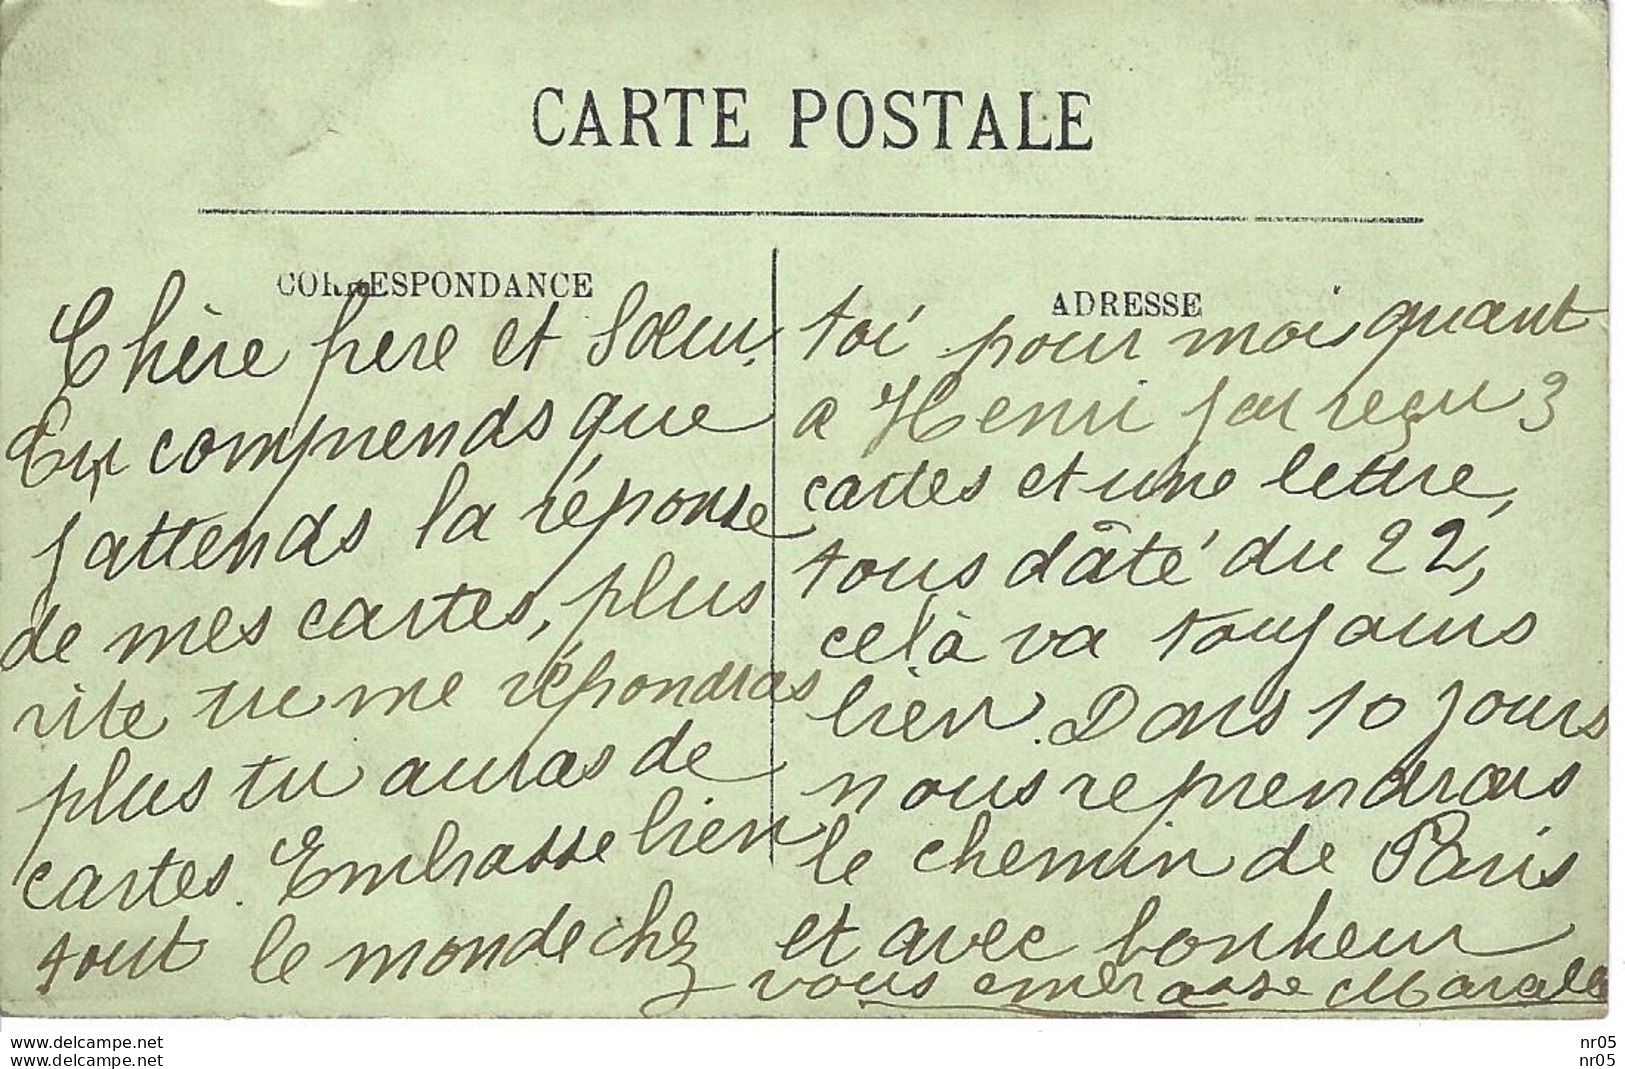 CARTE POSTALE
CORRESPONDANCE
Chère frere et Sœur.
Tu comprends que
j attends la réponse
de mes cartes, plus
vite tu me répondras
plus tu auras de
cartes. Embrasse bien
tout le monde chez
ADRESSE
toi pour moi quant
a Henri j ai reçu 3
cartes et une lettre,
tous dâté du 22,
celà va toujours
bien. Dans 10 jours
nous reprendrons
le chemin de Paris
et avec bonheur
vous embrasse
www.delcampe.net
www.delcampe.net
nr05
nr05